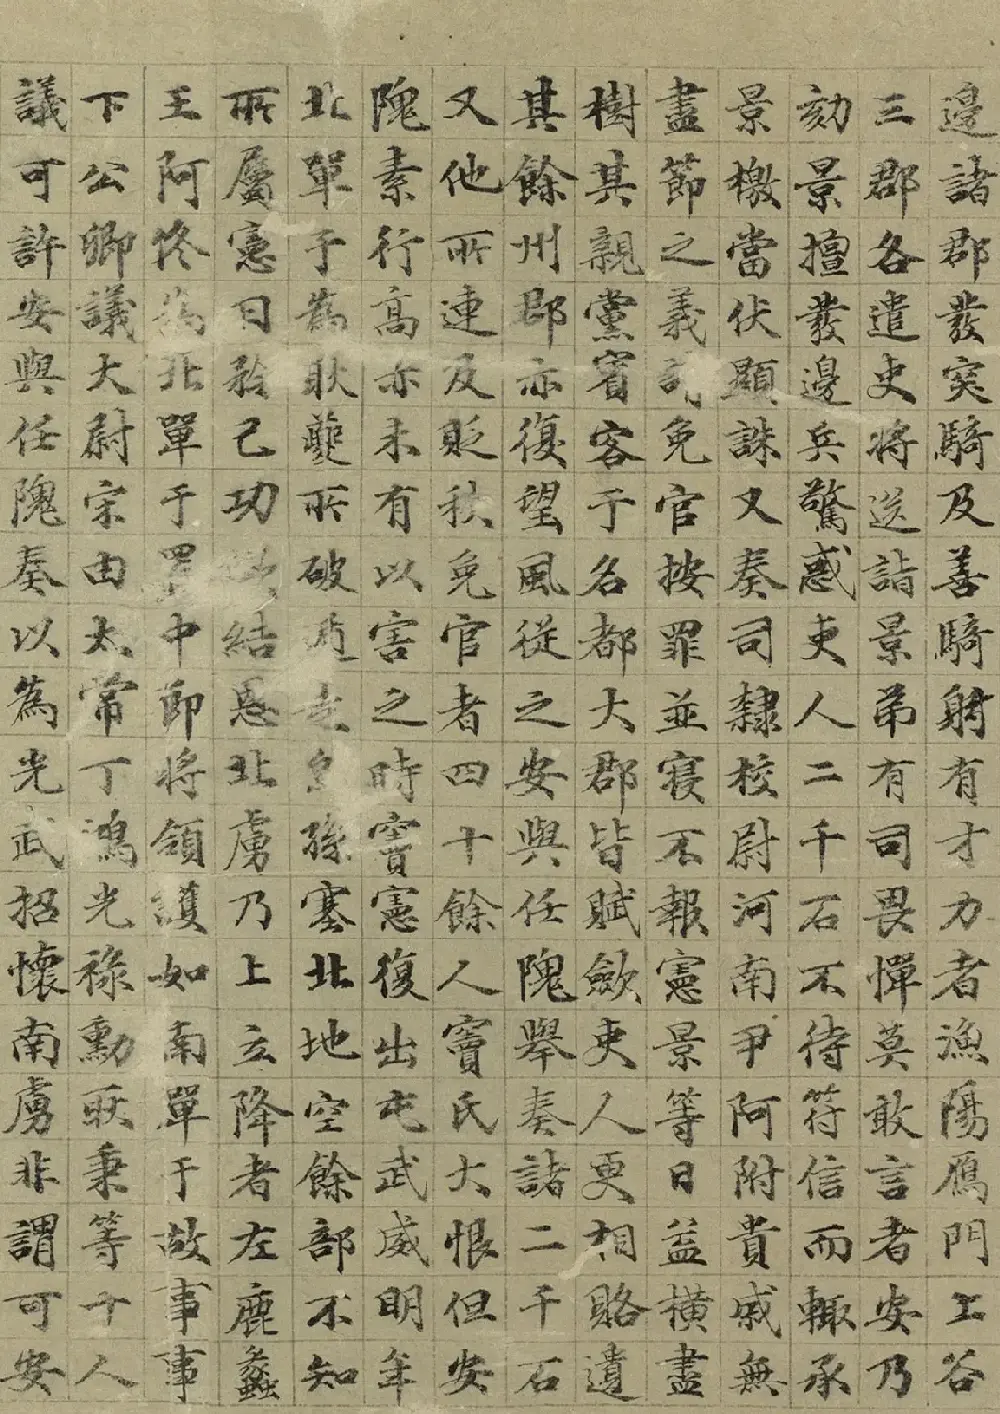 邊諸郡發突騎及善騎射有才力者漁陽鴈門上谷
三郡各遣吏將送詣景弟有司畏憚莫敢言者安乃
劾景擅發邊兵驚惑吏人二千石不待符信而輙承
景檄當伏顯誅又奏司隸校尉河南尹阿附貴戚無
盡節之義請免官按罪並寢不報憲景等日益橫盡
樹其親黨賓客于名都大郡皆賦斂吏人更相賂遺
其餘州郡亦復望風從之安與任隗舉奏諸二千石
又他所連及貶秩免官者四十餘人竇氏大恨但安
隗素行高亦未有以害之時竇憲復出屯武威明年
北單于為耿夔所破遁走烏孫塞北地空餘部不知
所屬憲日矜己功欲結恩北虜乃上立降者左鹿蠡
王阿佟為北單于置中郎將領護如南單于故事事
下公卿議大尉宋由太常丁鴻光祿勳耿秉等十人
議可許安與任隗奏以為光武招懷南虜非謂可安